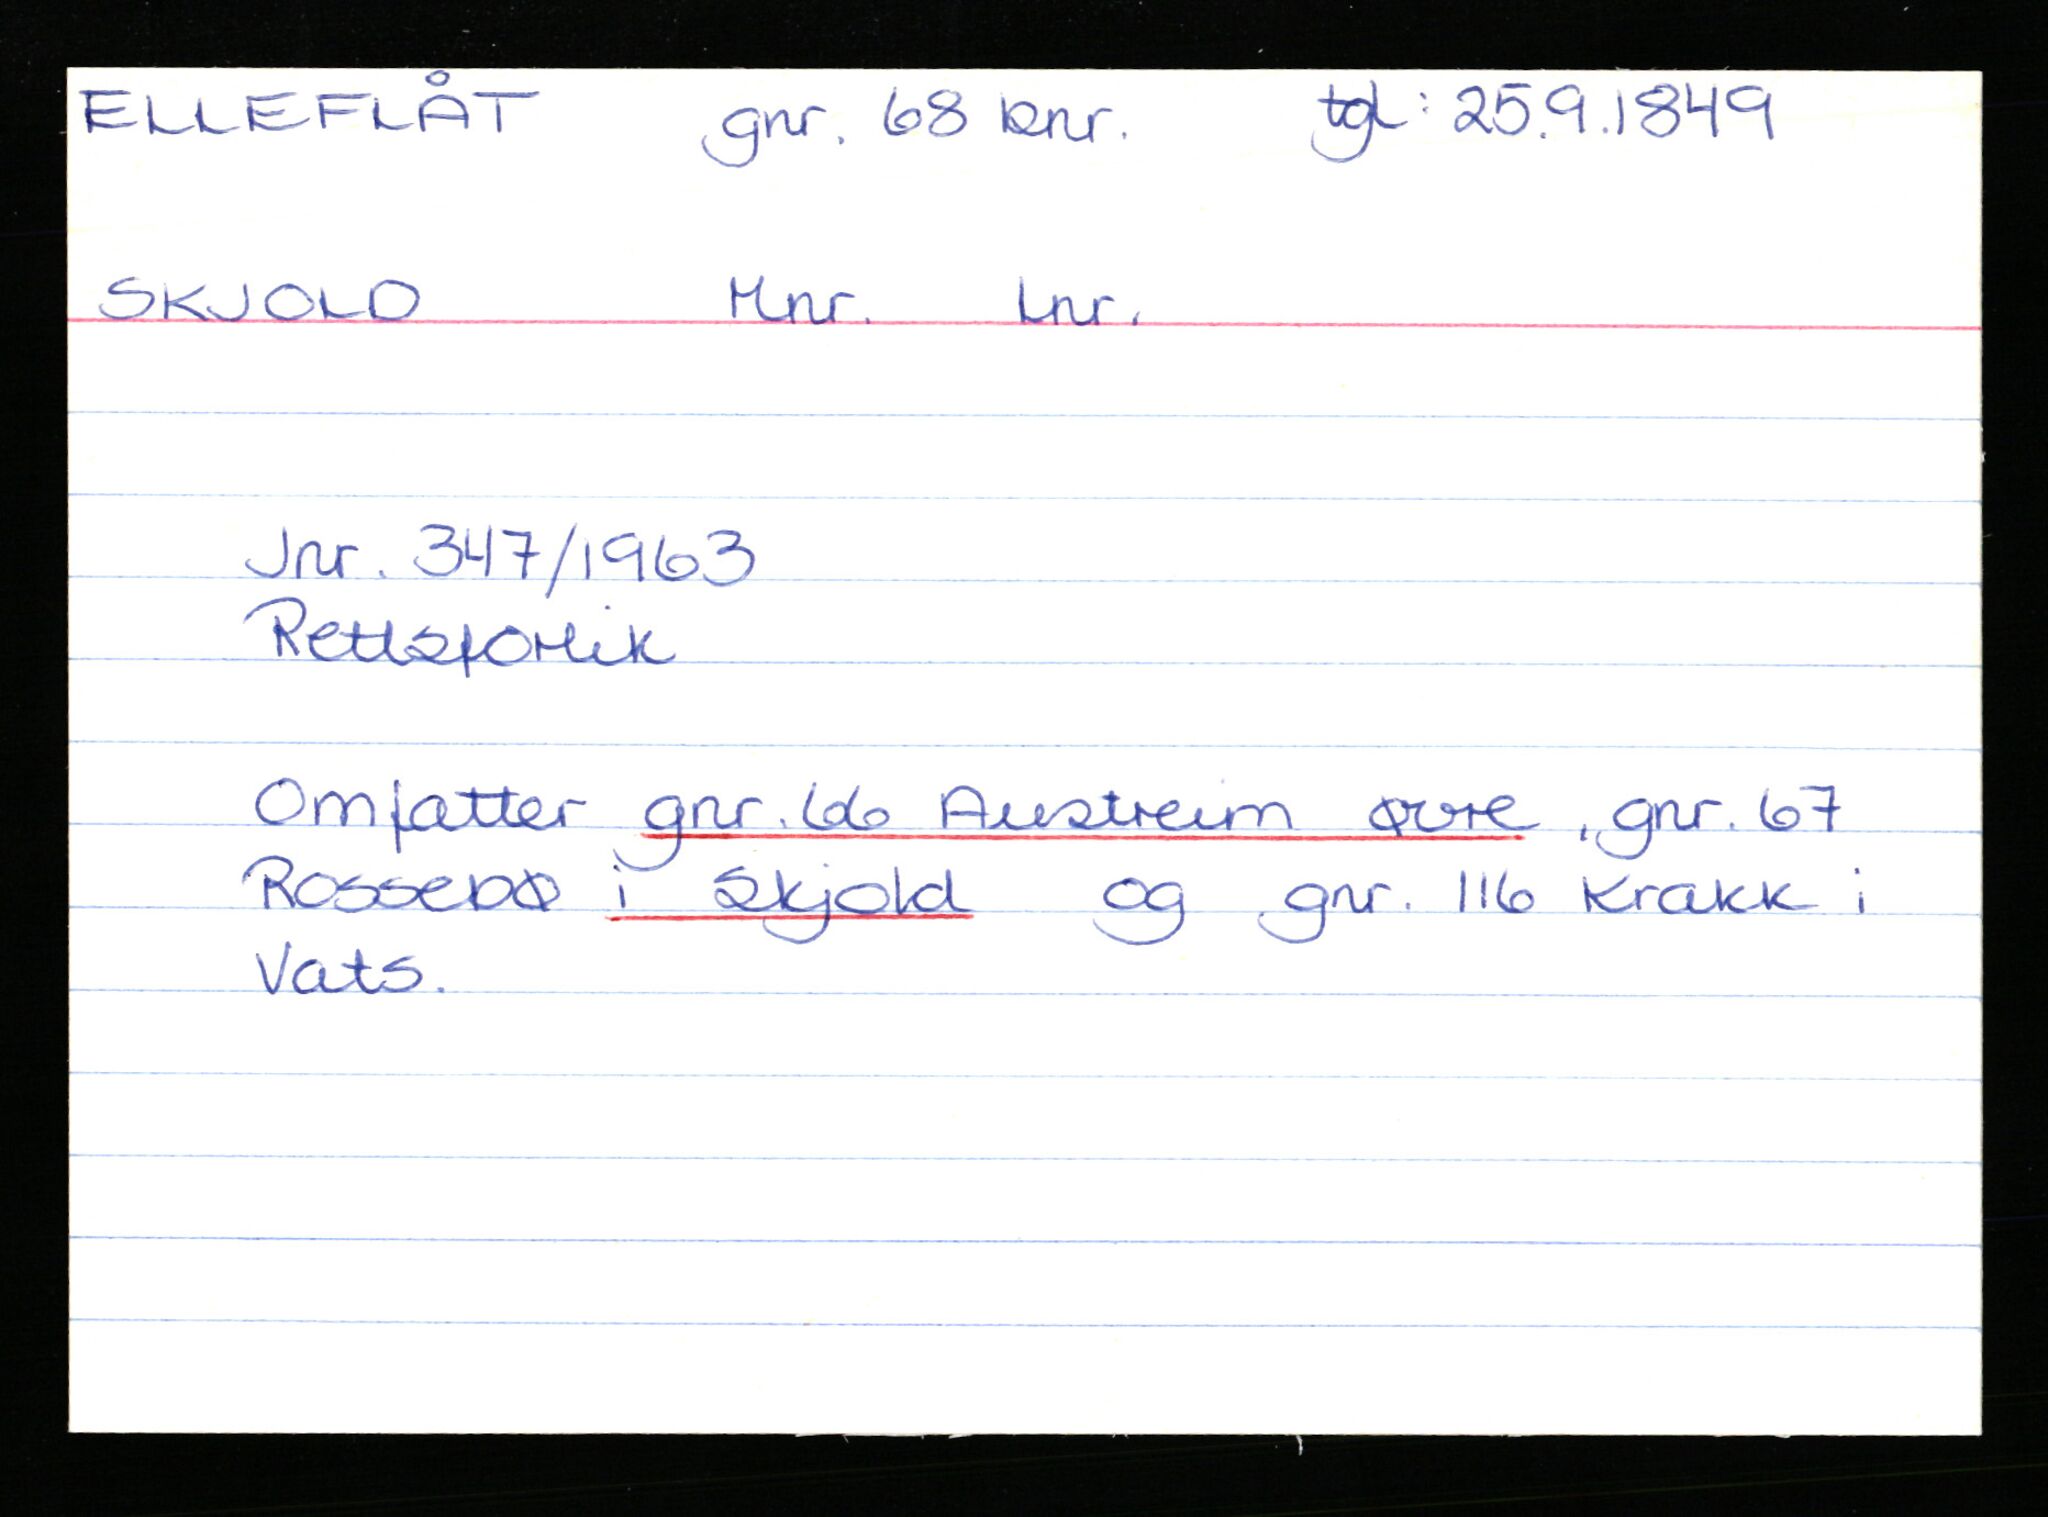 ELLEFLÅT gnr. 68 bnr. tgl: 25.9.1849
SKJOLD Mnr. Lnr.
Jnr. 347/1963
Rettsforlik
Omfatter gnr. 66 Austreim øvre, gnr. 67
Rossebø i Skjold og gnr. 116 Krakk i
Vats.